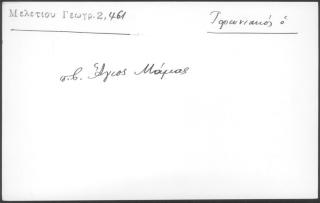 Μελετίου Γεωγρ.2,461
Τορωνιακός ὁ
π.β. Ἅγιος Μάμας